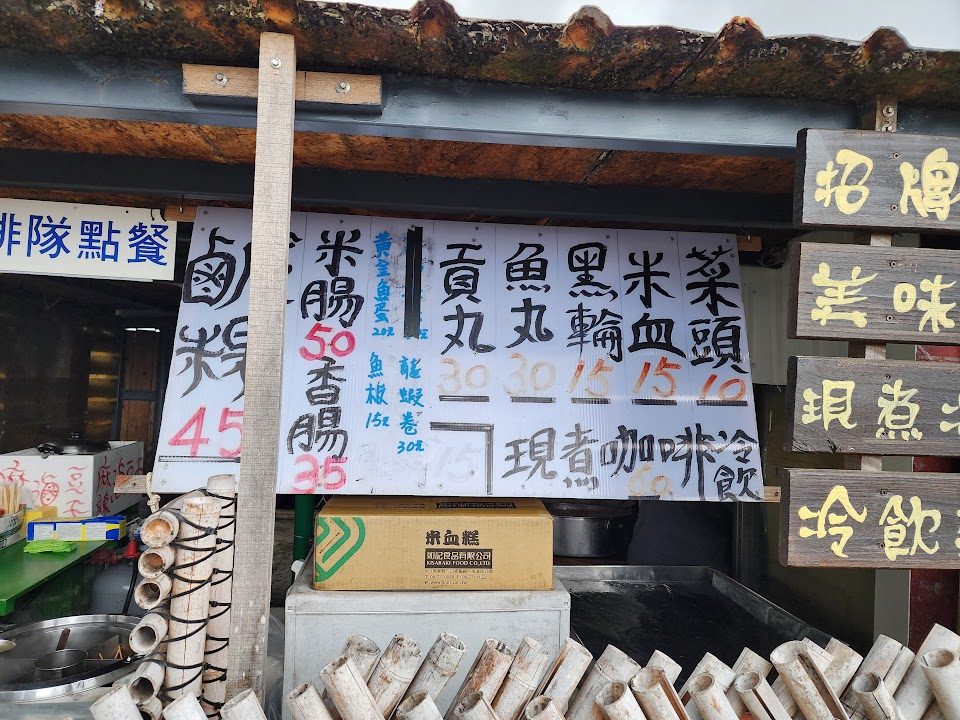 排隊點餐
鹵
粽
45
米腸
50
香腸
35
黃金魚蛋
20元
魚板
15元
龍蝦卷
30元
貢丸
30
魚丸
30
黑輪
15
米血
15
菜頭
10
現煮咖啡
冷飲
招牌
美味
現煮
冷飲
米血糕
如記食品有限公司
KISARAKI FOOD CO.,LTD